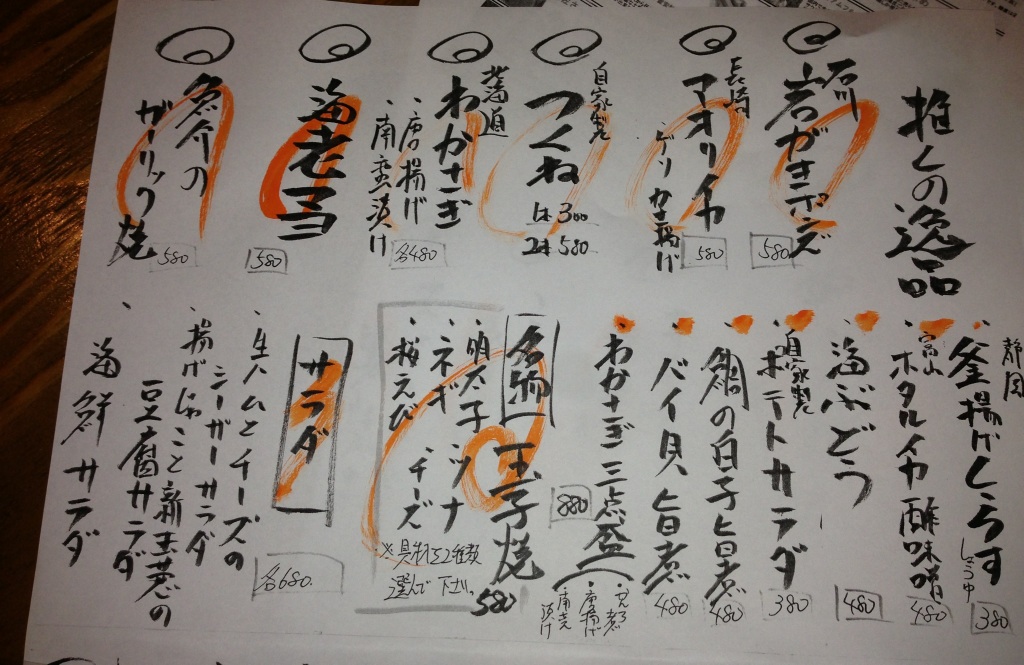 推しの逸品
石川
岩がきポン酢
580
長崎
アオリイカ
ゲソカラ揚げ
580
自家製
つくね
1本 300
2本 580
北海道
わかさぎ
・唐揚げ
・南蛮漬け
各480
海老マヨ
580
ガーリック焼
580
静岡
釜揚げしらす
しょうゆ
380
富山
ホタルイカ酢味噌
480
海ぶどう
480
自家製
ポテトサラダ
380
鯛の白子旨煮
480
バイ貝旨煮
480
わかさぎ三点盛
・かんろ煮
・唐揚げ
・南蛮漬け
880
名物 玉子焼
580
・明太子・ツナ
・ネギ・チーズ
・桜えび
※具材を2種類
選んで下さい。
サラダ
各680.
・生ハムとチーズの
シーザーサラダ
・揚げじゃこと新玉葱の
豆腐サラダ
・海鮮サラダ